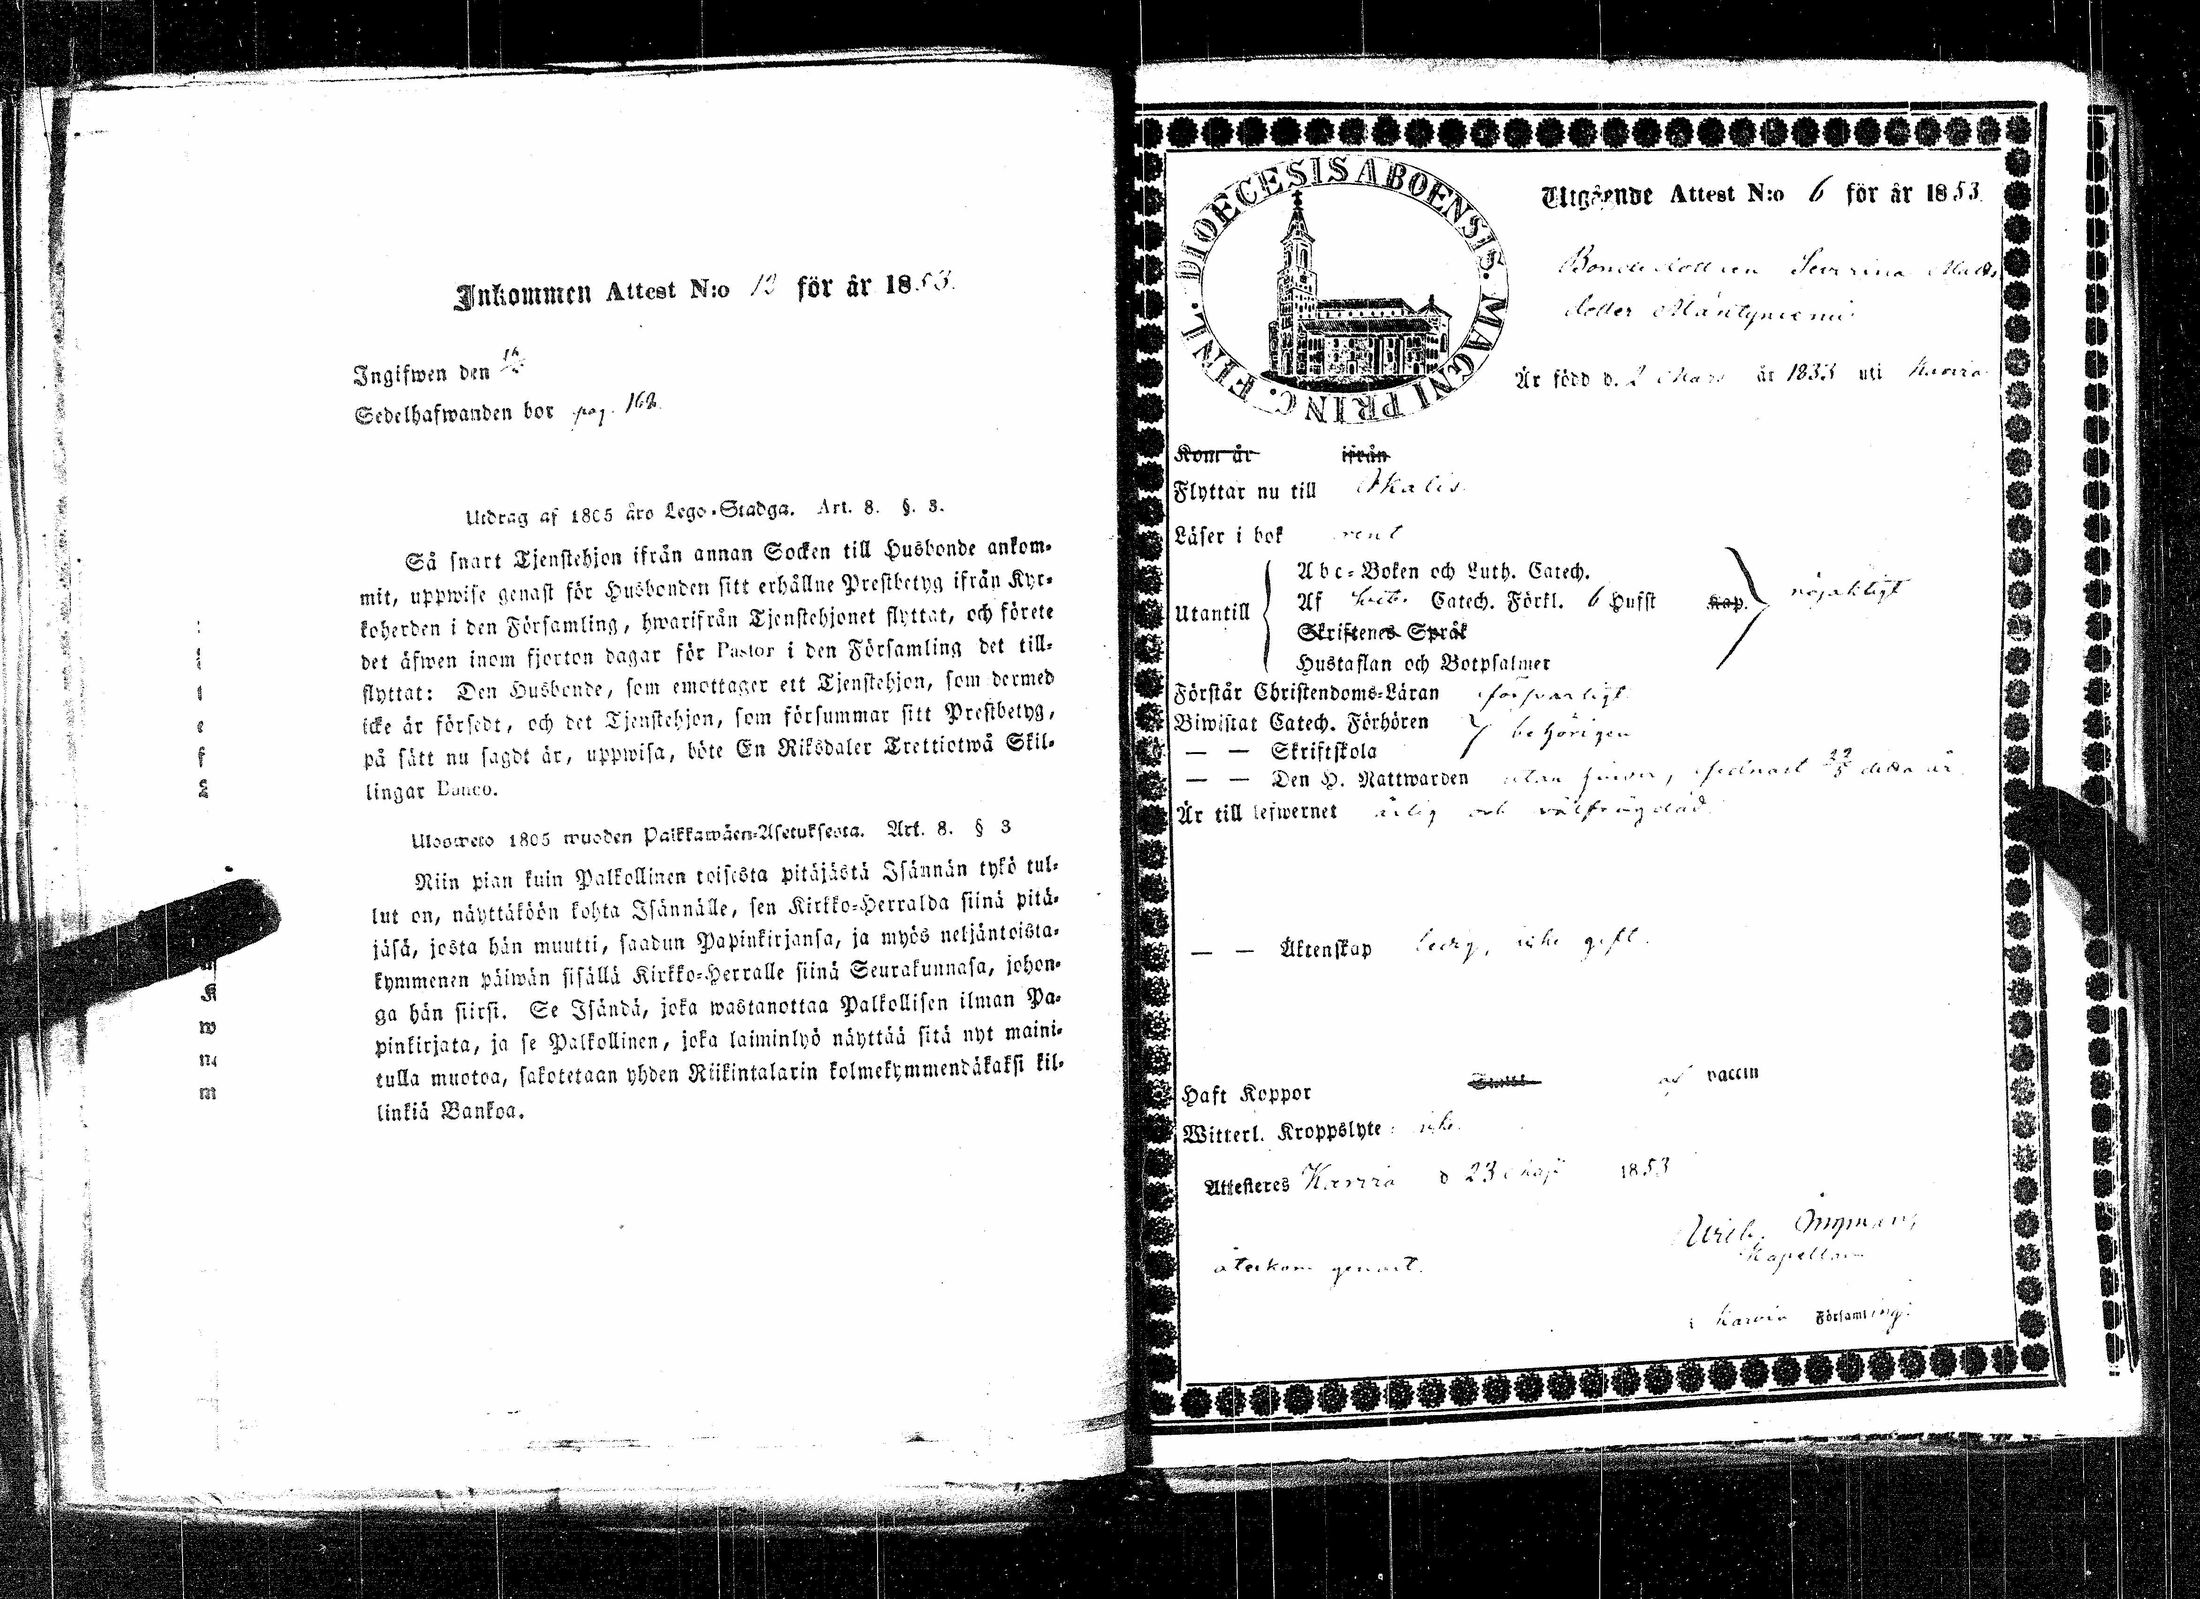 Inkommen Attest N:o 13 för år 1853.
Ingifwen den
Sedelhafwanden bor pag. 162.
Utdrag af 1805 åro Lego-Stadga. Art. 8. §. 3.
Så snart Tjenstehjon ifrån annan Socken till Husbonde ankom-
mit, uppwise genast för Husbonden sitt erhållne Prestbetyg ifrån Kyr-
koherden i den Församling, hwarifrån Tjenstehjonet flyttat, och förete
det äfwen inom fjorton dagar för Pastor i den Församling det till-
flyttat: Den Husbonde, som emottager ett Tjenstehjon, som dermed
icke är försedt, och det Tjenstehjon, som försummar sitt Prestbetyg,
på sätt nu sagdt är, uppwisa, böte En Riksdaler Trettiotwå Skil-
lingar Banco.
Ulosweto 1805 wuoden Palkkawäen-Asetuksesta. Art. 8. § 3
Niin pian kuin Palkollinen toisesta pitäjästä Isännän tykö tul-
lut on, näyttäköön kohta Isännälle, sen Kirkko-Herralda siinä pitä-
jäsä, josta hän muutti, saadun Papinkirjansa, ja myös neljäntoista-
kymmenen päiwän sisällä Kirkko-Herralle siinä Seurakunnasa, johon-
ga hän siirsi. Se Isändä, joka wastanottaa Palkollisen ilman Pa-
pinkirjata, ja se Palkollinen, joka laiminlyö näyttää sitä nyt maini-
tulla muotoa, sakotetaan yhden Riikintalarin kolmekymmendäkaksi kil-
linkiä Bankoa.
DIOECESIS ABOENSIS. MAGNI PRINC. FINL.
Utgående Attest N:o 6 för år 1853.
Bondedottren Severina Matts
dotter Mäntyniemi
Är född d. 2 Mars år 1833 uti Karvia
Kom år ifrån
Flyttar nu till Ikalis.
Läser i bok rent
Utantill
Abc-Boken och Luth. Catech.
Af Catech. Förkl. 6 Hufst Kap. nöjaktigt
Skriftenes Språk
Hustaflan och Botpsalmer
Förstår Christendoms-Läran försvarligt
Biwistat Catech. Förhören behörigen
— — Skriftskola
— — Den H. Nattwarden utan hinder, sednast 22/5 detta år
Är till lefwernet ärlig och välfrägdad.
— — Äktenskap ledig, icke gift.
Haft Koppor af vaccin
Witterl. Kroppslyte: icke.
Attesteres Karvia d 23 Maji 1853
Kapellan
återkom genast.
i Karvia Församling.